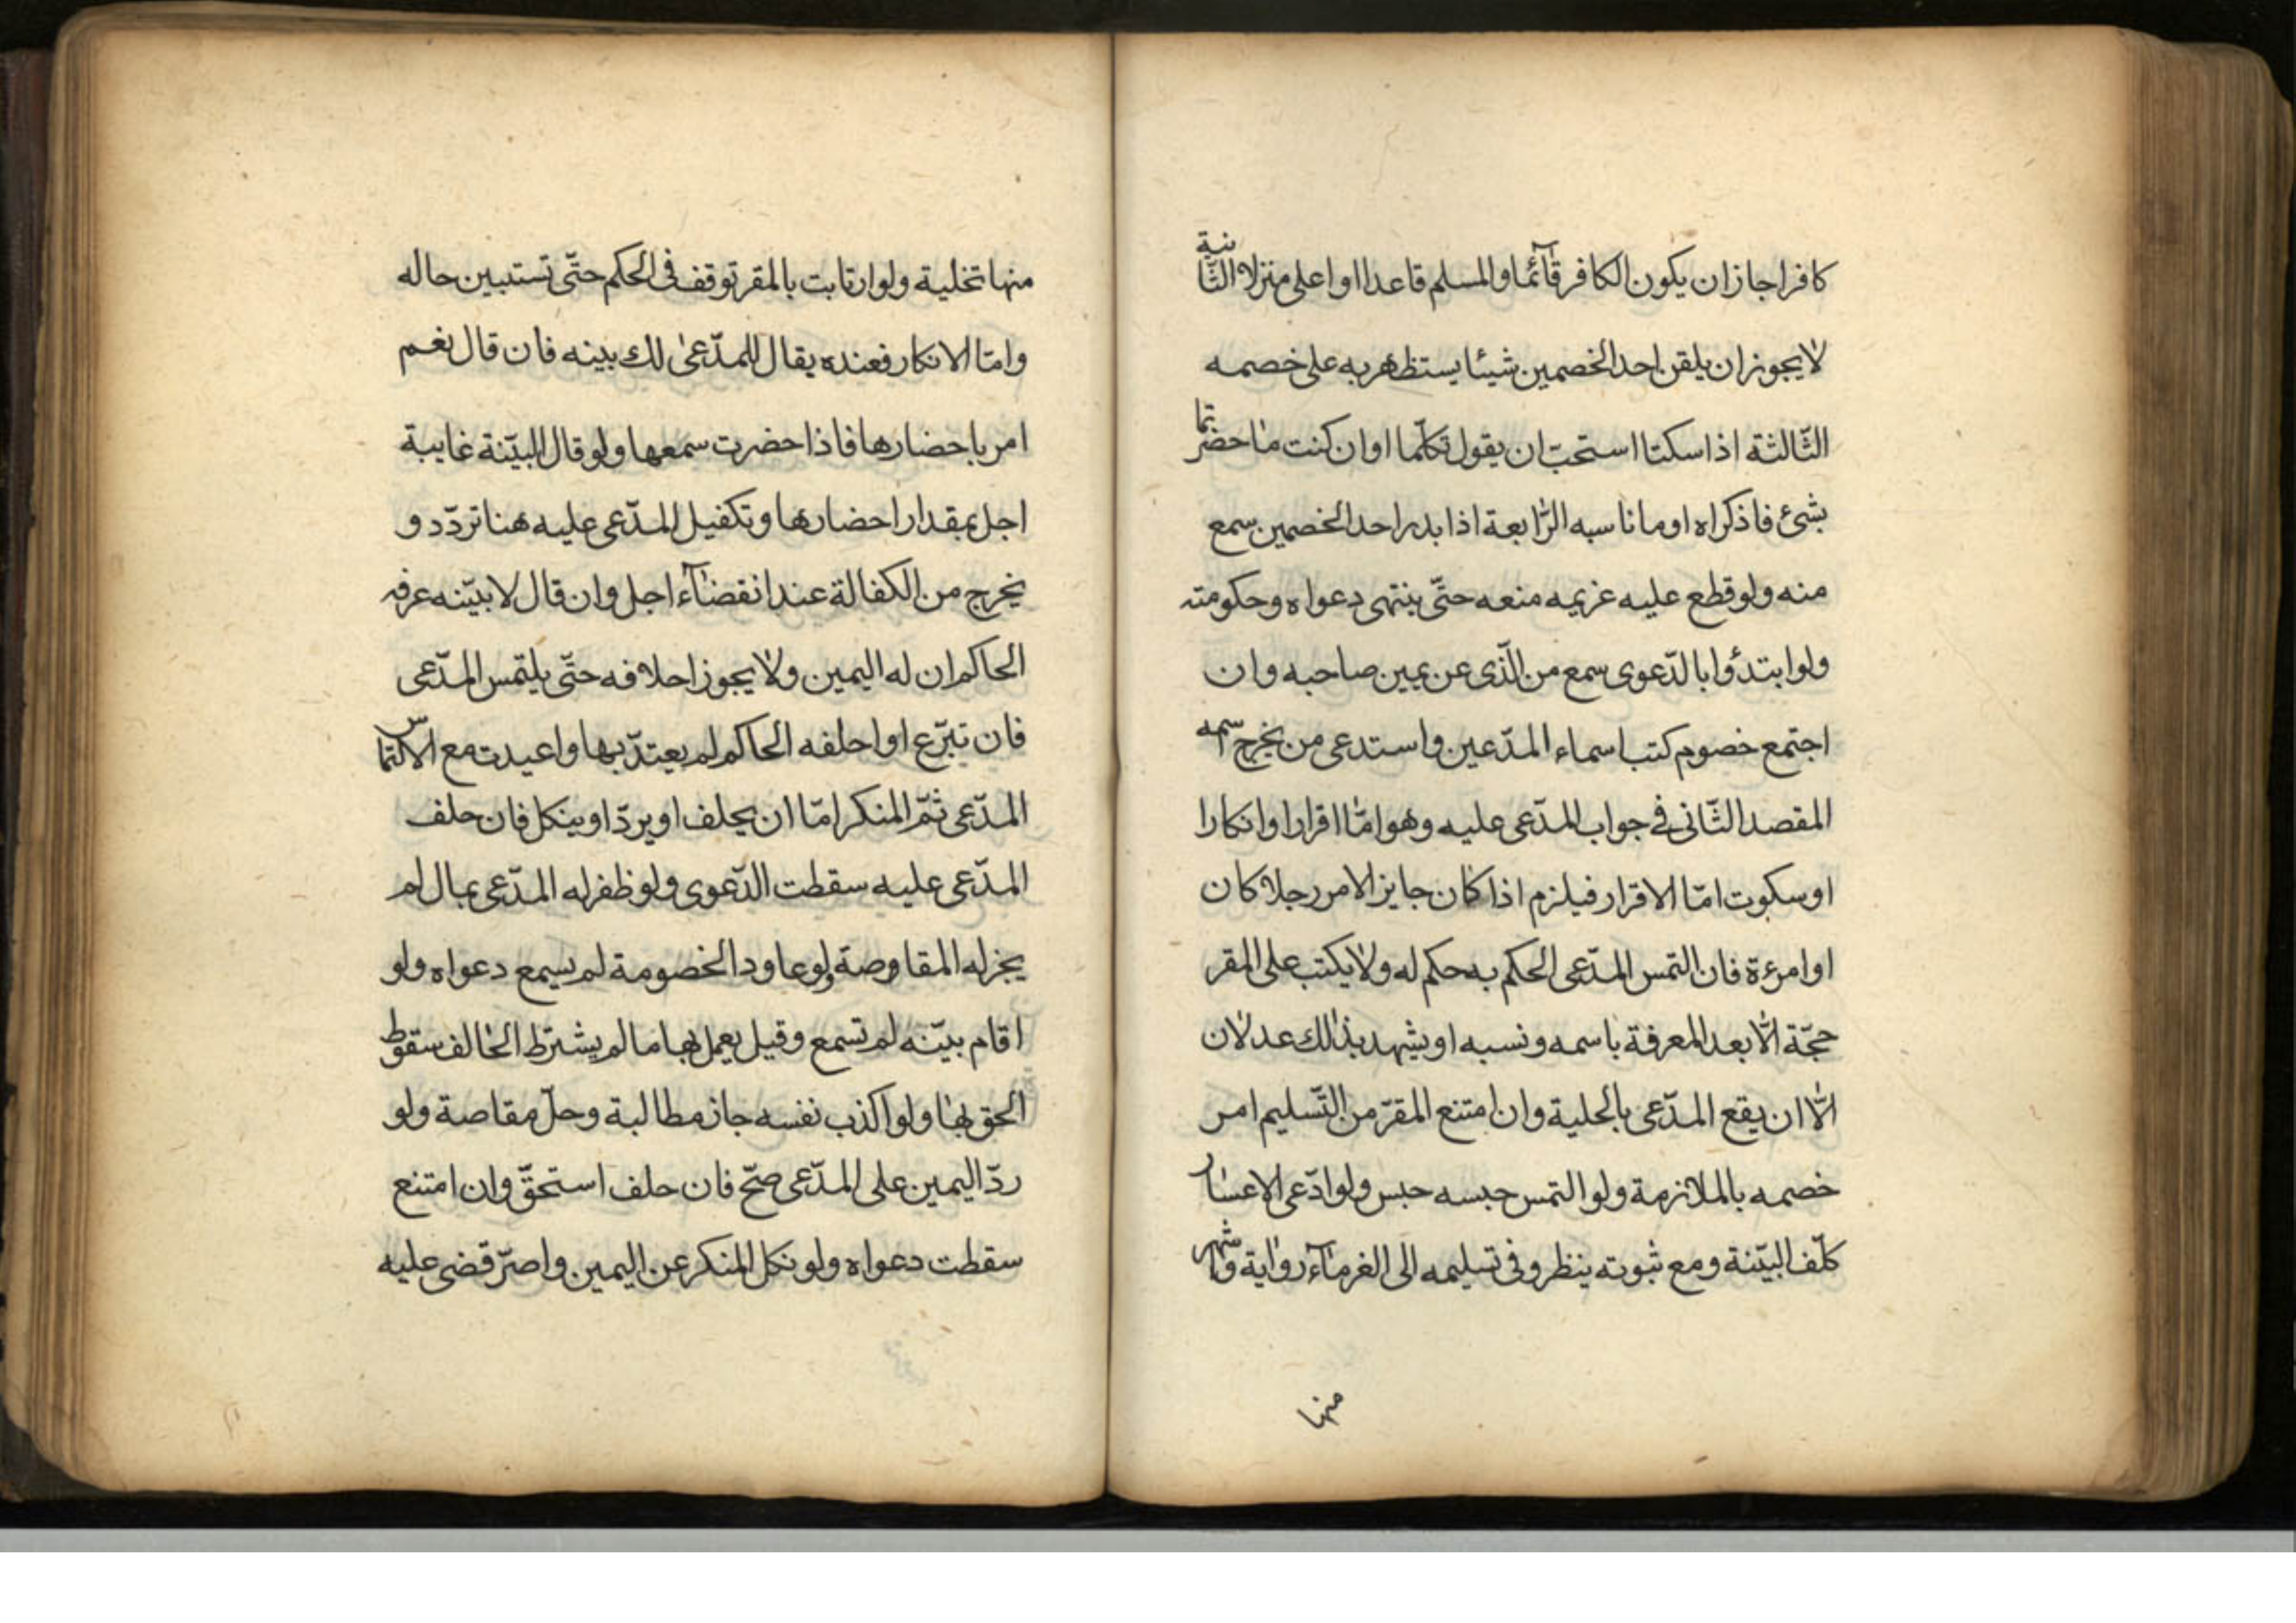 كافرا جاز ان يكون الكافر قآئما والمسلم قاعدا او اعلى منزلا الثّانية
لا يجوز ان يلقن احد الخصمين شيئا يستظهر به على خصمه
الثّالثة اذا سكتا استحبّ ان يقول تكلّما او ان كنت ما حضرتما
بشئ فاذكراه او ما ناسبه الرّابعة اذا بدر احد الخصمين سمع
منه ولو قطع عليه غريمه منعه حتّى ينتهى دعواه وحكومته
ولو ابتدؤا بالدّعوى سمع من الّذى عن يمين صاحبه وان
اجتمع خصوم كتب اسماء المدّعين واستدعى من يخرج سمه
المقصد الثّانى فى جواب المدّعى عليه وهو امّا اقرارا وانكارا
او سكوت امّا الاقرار فيلزم اذا كان جايز الامر رجلا كان
او امرءة فان التمس المدّعى الحكم به حكم له ولا يكتب على المقر
حجّة الّا بعد المعرفة باسمه ونسبه او يشهد بذالك عدلان
الّا ان يقع المدّعى بالحلية وان امتنع المقرّ من التّسليم امر
خصمه بالملازمة ولو التمس حبسه حبس ولو ادّعى الاعسار
كلّف البيّنة ومع ثبوته ينظر وفى تسليمه الى الغرمآء رواية واشهر
منها
منها تخلية ولو ارتابت بالمقر توقف فى الحكم حتّى تستبين حاله
وامّا الانكار فعنده يقال للمدّعى لك بينه فان قال نعم
امر باحضارها فاذا حضرت سمعها ولو قال البيّنة غايبة
اجل بمقدار احضارها وتكفيل المدّعى عليه هنا تردّد و
يخرج من الكفالة عند انقضآء اجل وان قال لا بيّنه عرفه
الحاكم ان له اليمين ولا يجوز احلافه حتّى يلتمس المدّعى
فان تبرّع او احلفه الحاكم لم يعتدّ بها واعيدت مع الالتماس
المدّعى ثمّ المنكر امّا ان يحلف او يردّ او ينكل فان حلف
المدّعى عليه سقطت الدّعوى ولو ظفر له المدّعى بمال لم
يجز له المقاوصة ولو عاود الخصومة لم يسمع دعواه ولو
اقام بيّنه لم تسمع وقيل يعمل بها ما لم يشترط الحالف سقوط
الحق بها ولو اكذب نفسه جاز مطالبة وحلّ مقاصة ولو
ردّ اليمين على المدّعى صحّ فان حلف استحقّ وان امتنع
سقطت دعواه ولو نكل المنكر عن اليمين واصرّ قضى عليه